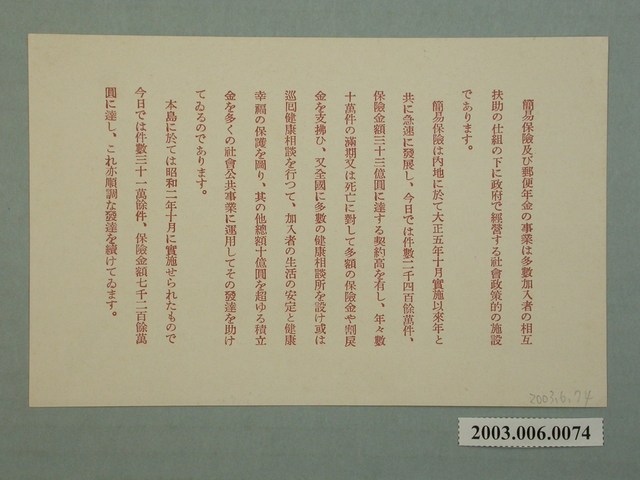 簡易保險及び郵便年金の事業は多數加入者の相互
扶助の仕組の下に政府で經營する社會政策的の施設
であります。
簡易保險は內地に於て大正五年十月實施以來年と
共に急速に發展し、今日では件數二千四百餘萬件、
保險金額三十三億圓に達する契約高を有し、年々數
十萬件の滿期又は死亡に對して多額の保險金や割戾
金を支拂ひ、又全國に多數の健康相談所を設け或は
巡囘健康相談を行つて、加入者の生活の安定と健康
幸福の保護を圖り、其の他總額十億圓を超ゆる積立
金を多くの社會公共事業に運用してその發達を助け
てゐるのであります。
本島に於ては昭和二年十月に實施せられたもので
今日では件數三十一萬餘件、保險金額七千二百餘萬
圓に達し、これ亦順調な發達を續けてゐます。
2003.6.74
2003.006.0074